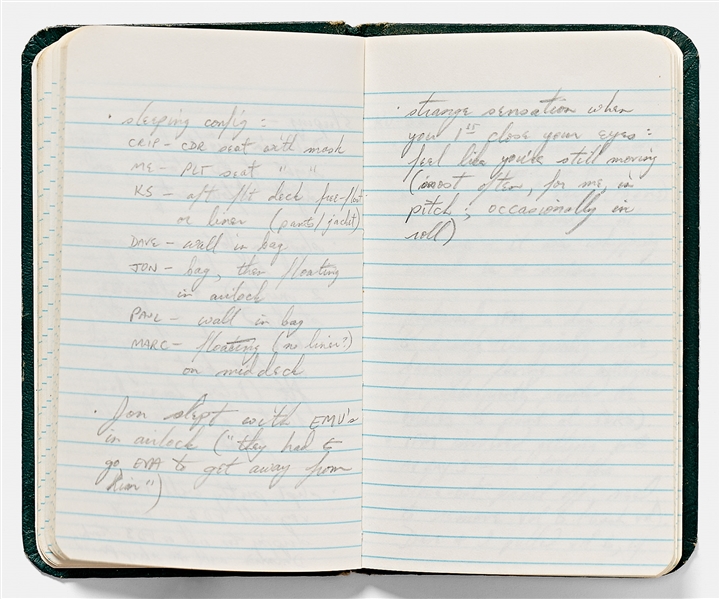 · sleeping config :
CRIP - CDR seat with mask
ME - PLT seat " "
KS - aft flt deck free-float
or liner (pants/jacket)
DAVE - wall in bag
JON - bag, then floating
in airlock
PAUL - wall in bag
MARC - floating (no liner?)
on middeck
· Jon slept with EMU's
in airlock ("they had to
go EVA to get away from
him")
· strange sensation when
you 1st close your eyes :
feel like you're still moving
(most often, for me, in
pitch ; occasionally in
roll)